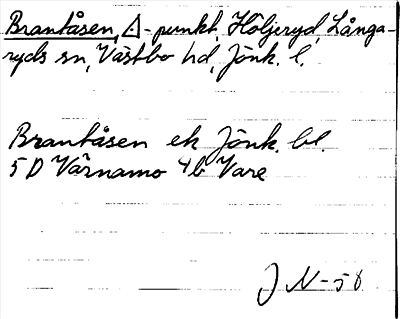 Brantåsen, △-punkt, Höljeryd, Långa-
ryds sn, Västbo hd, Jönk. l.
Brantåsen ek Jönk. bl.
5 D Värnamo 4b Vare
J N-58